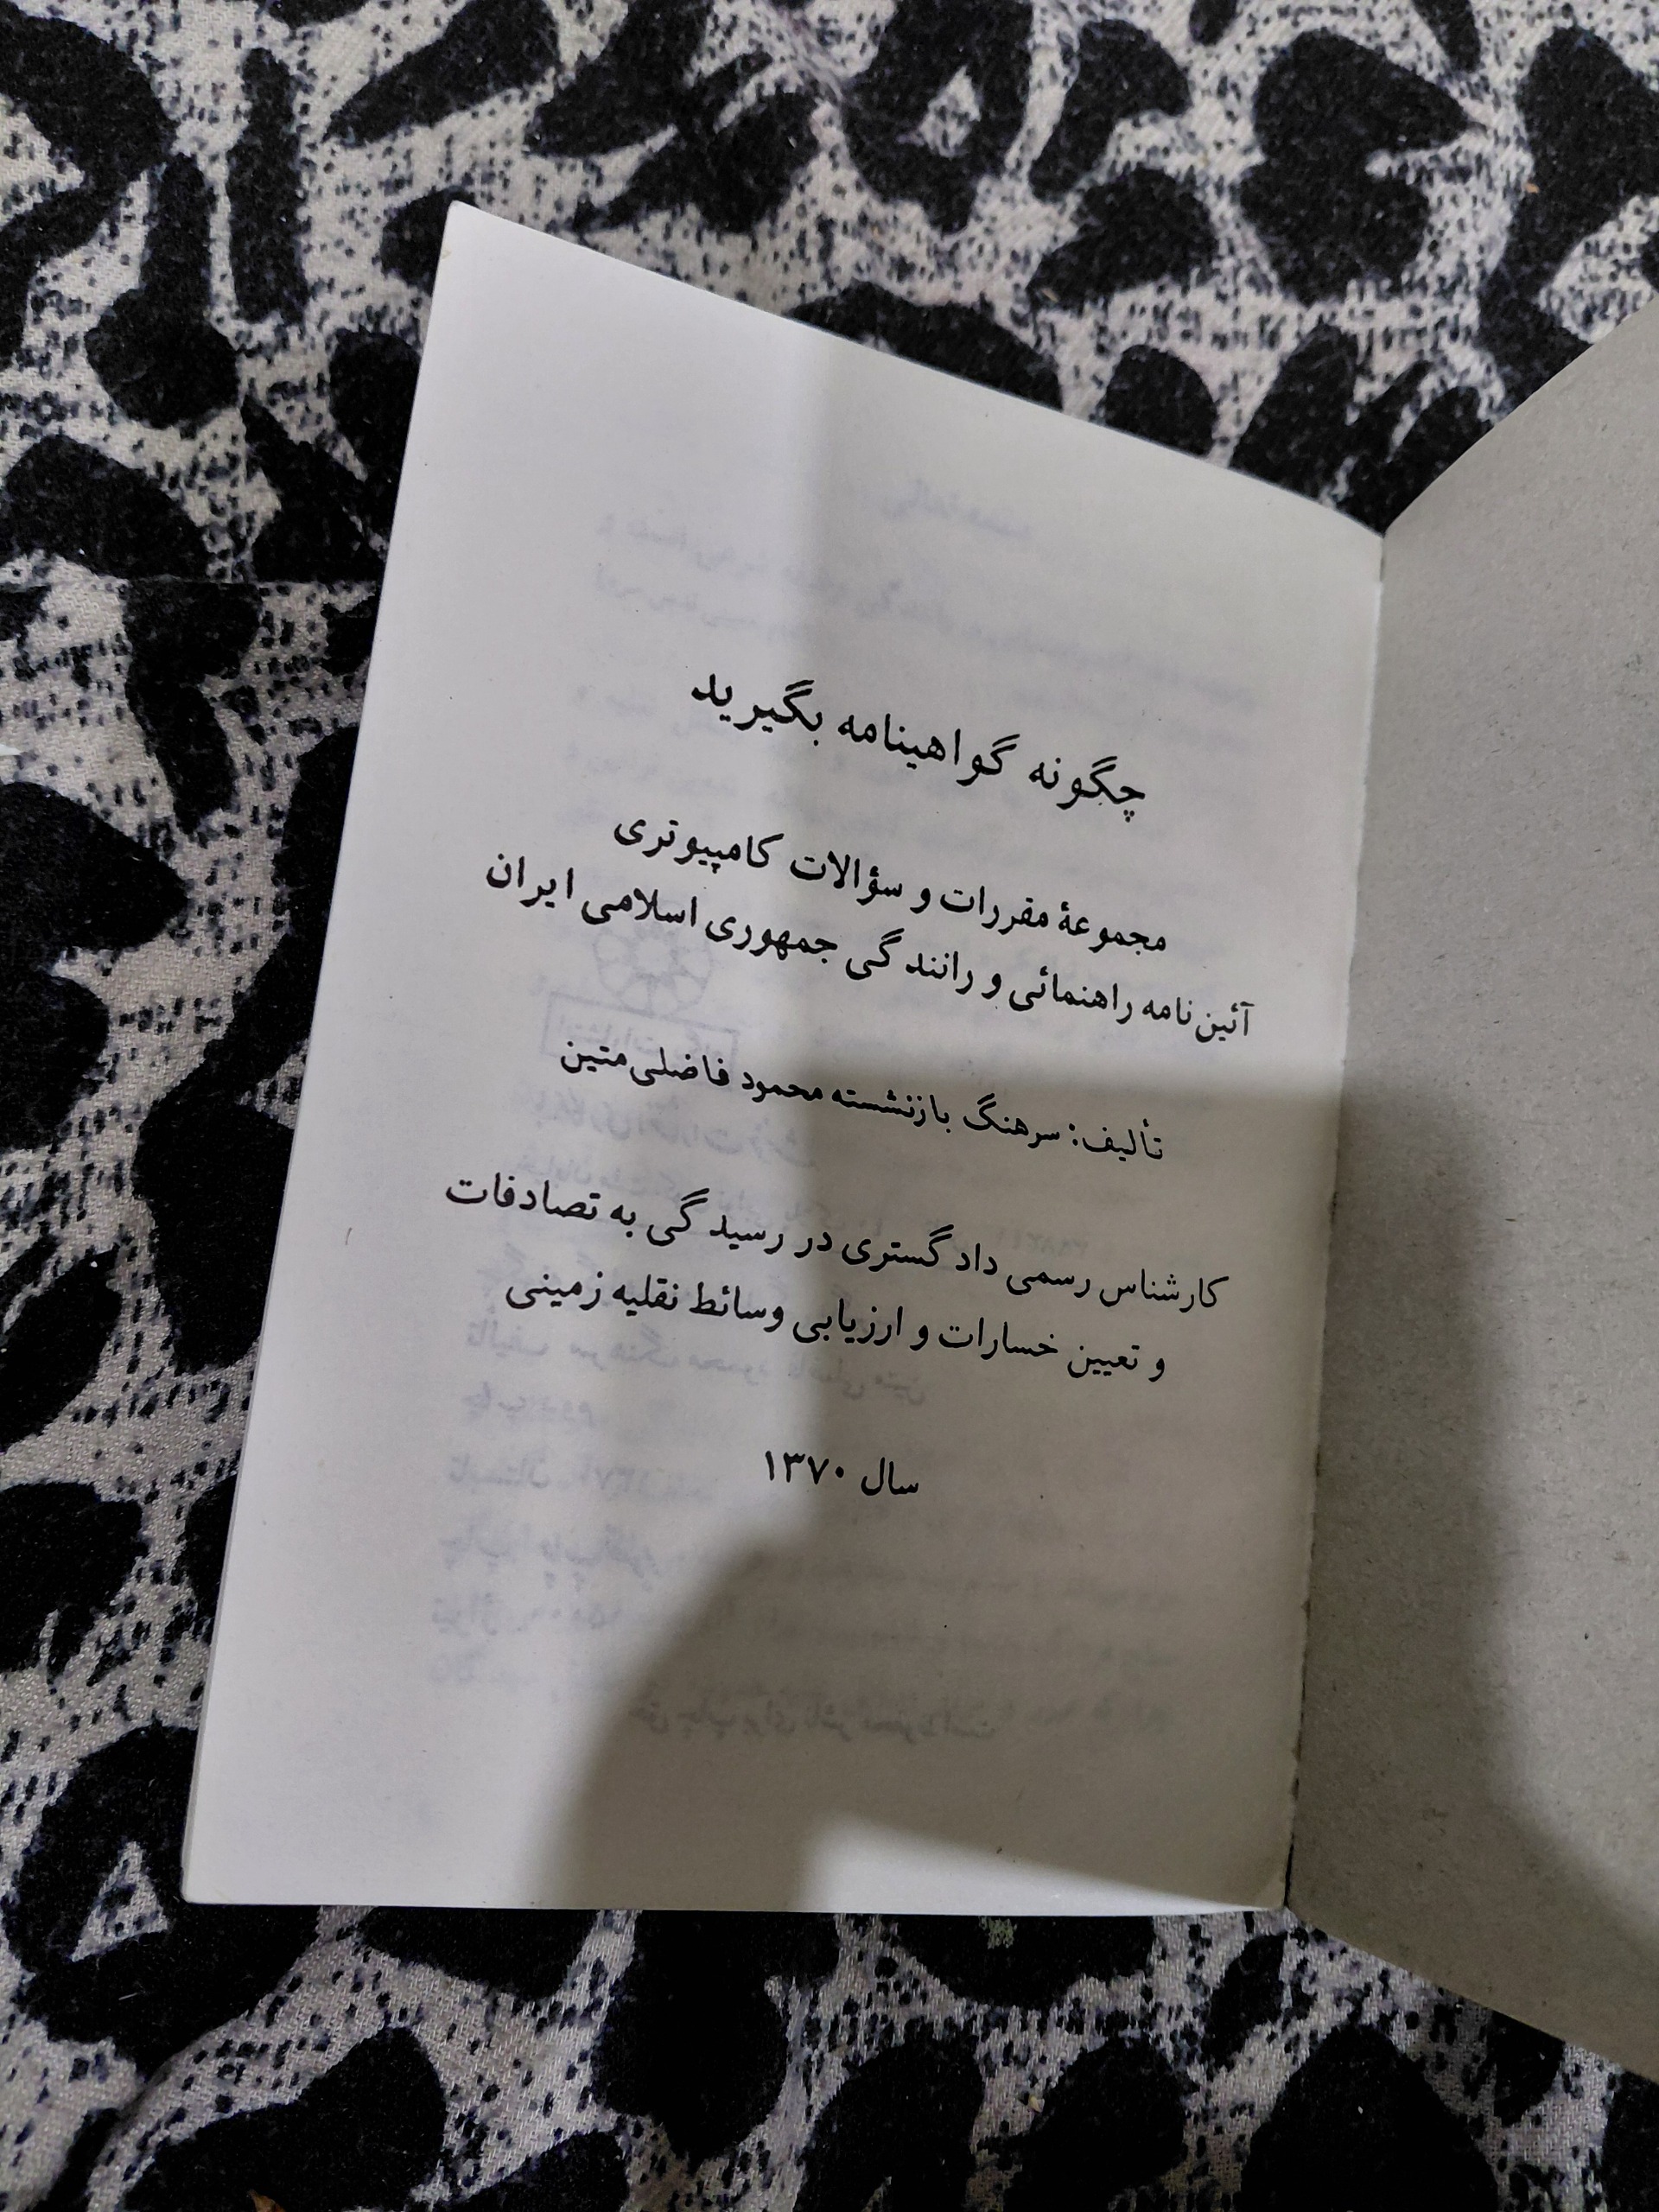 چگونه گواهینامه بگیرید
مجموعهٔ مقررات و سؤالات کامپیوتری
آئین‌نامه راهنمائی و رانندگی جمهوری اسلامی ایران
تألیف: سرهنگ بازنشسته محمود فاضلی‌متین
کارشناس رسمی دادگستری در رسیدگی به تصادفات
و تعیین خسارات و ارزیابی وسائط نقلیه زمینی
سال ۱۳۷۰